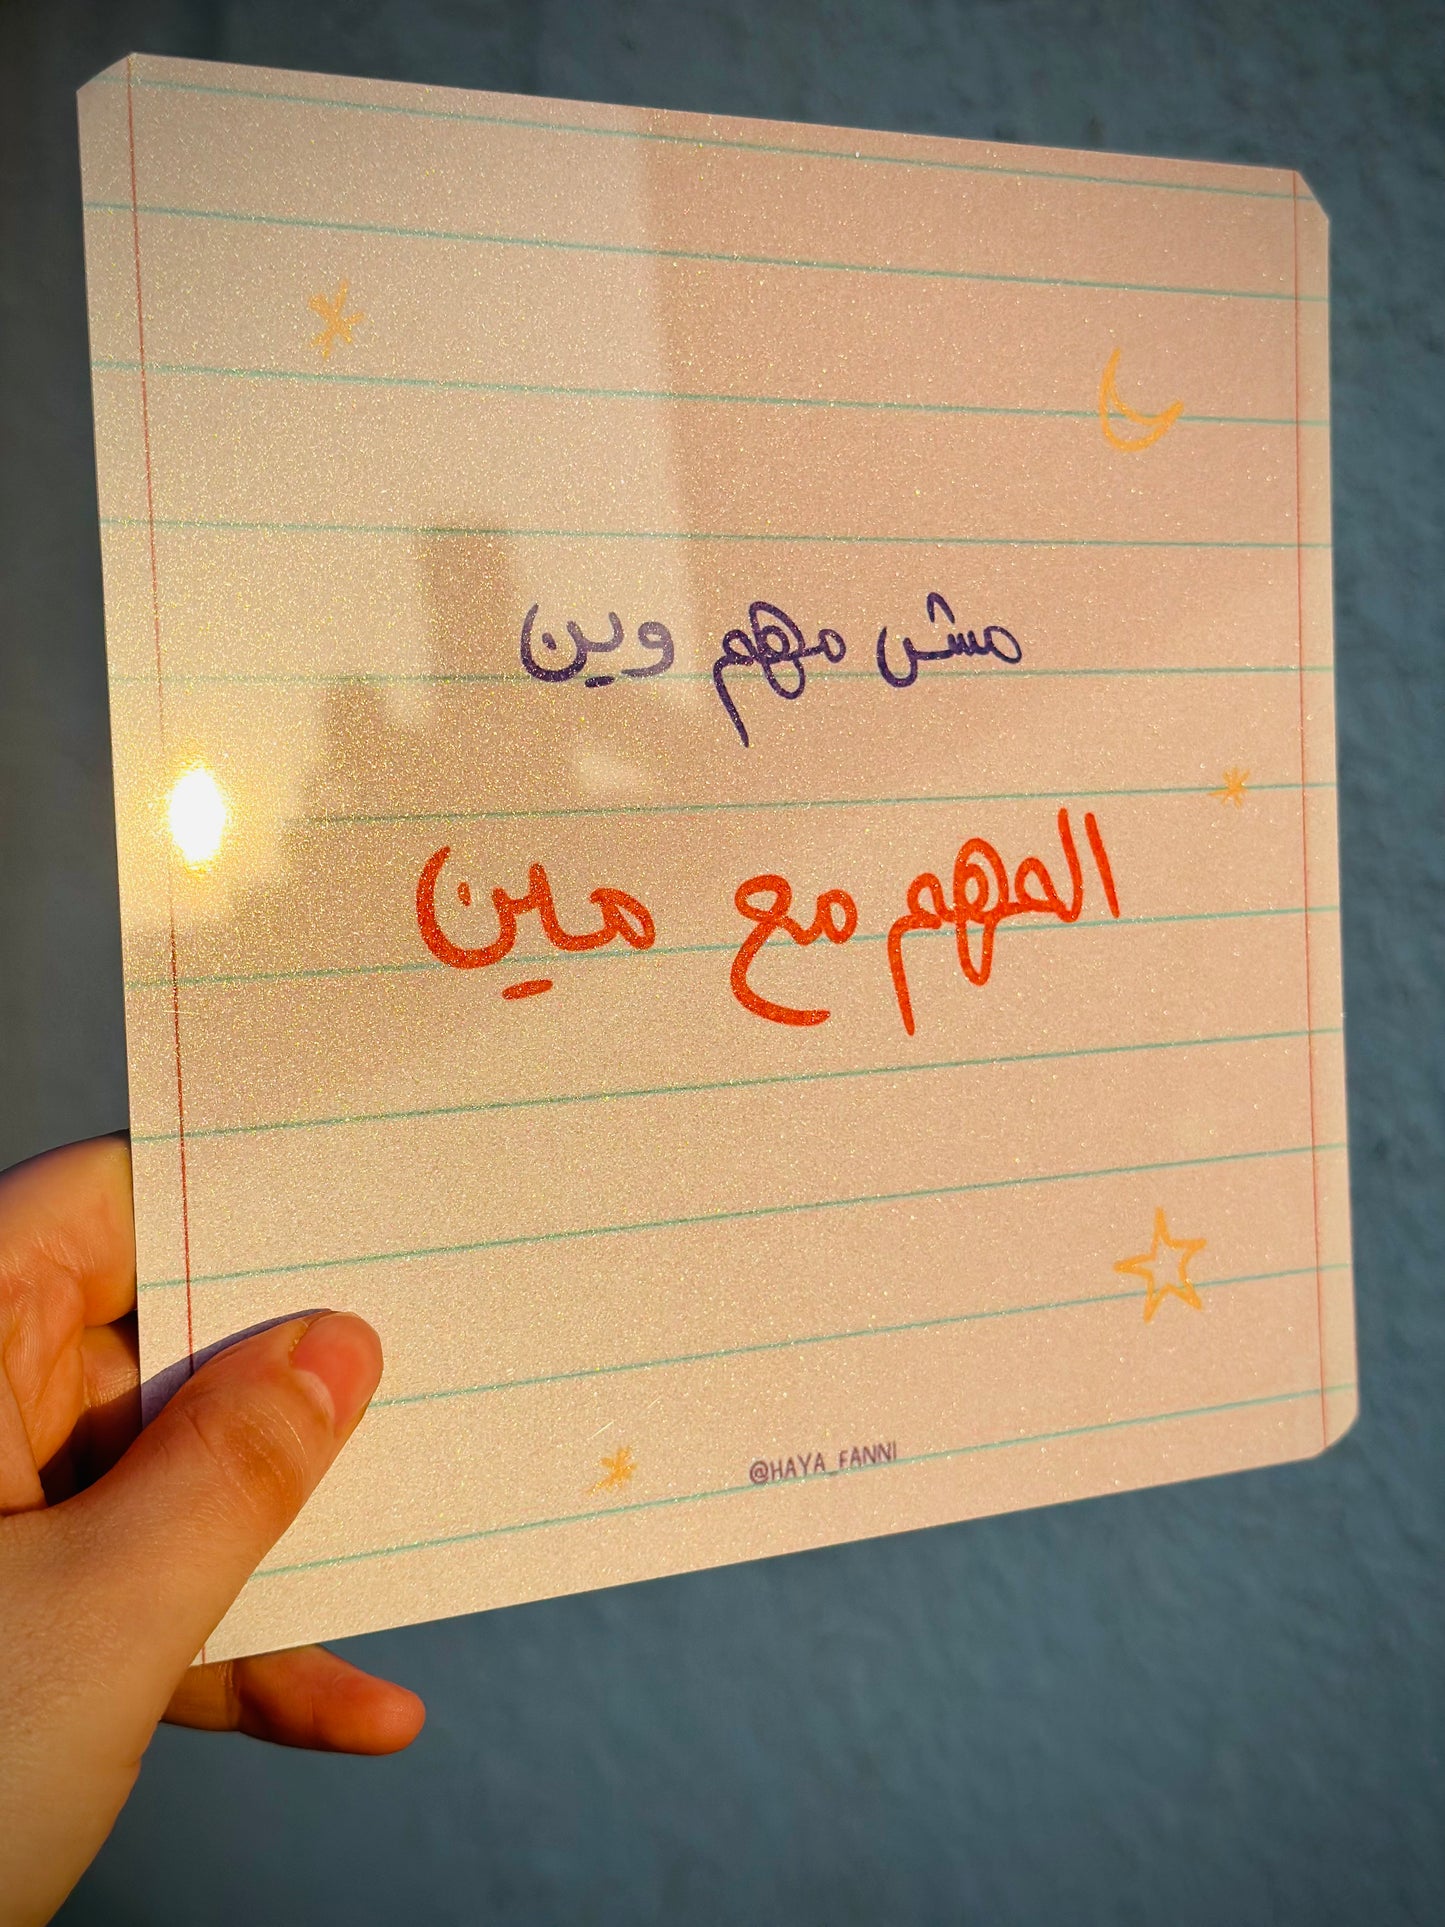 مش مهم وين
المهم مع مين
@HAYA_FANNI